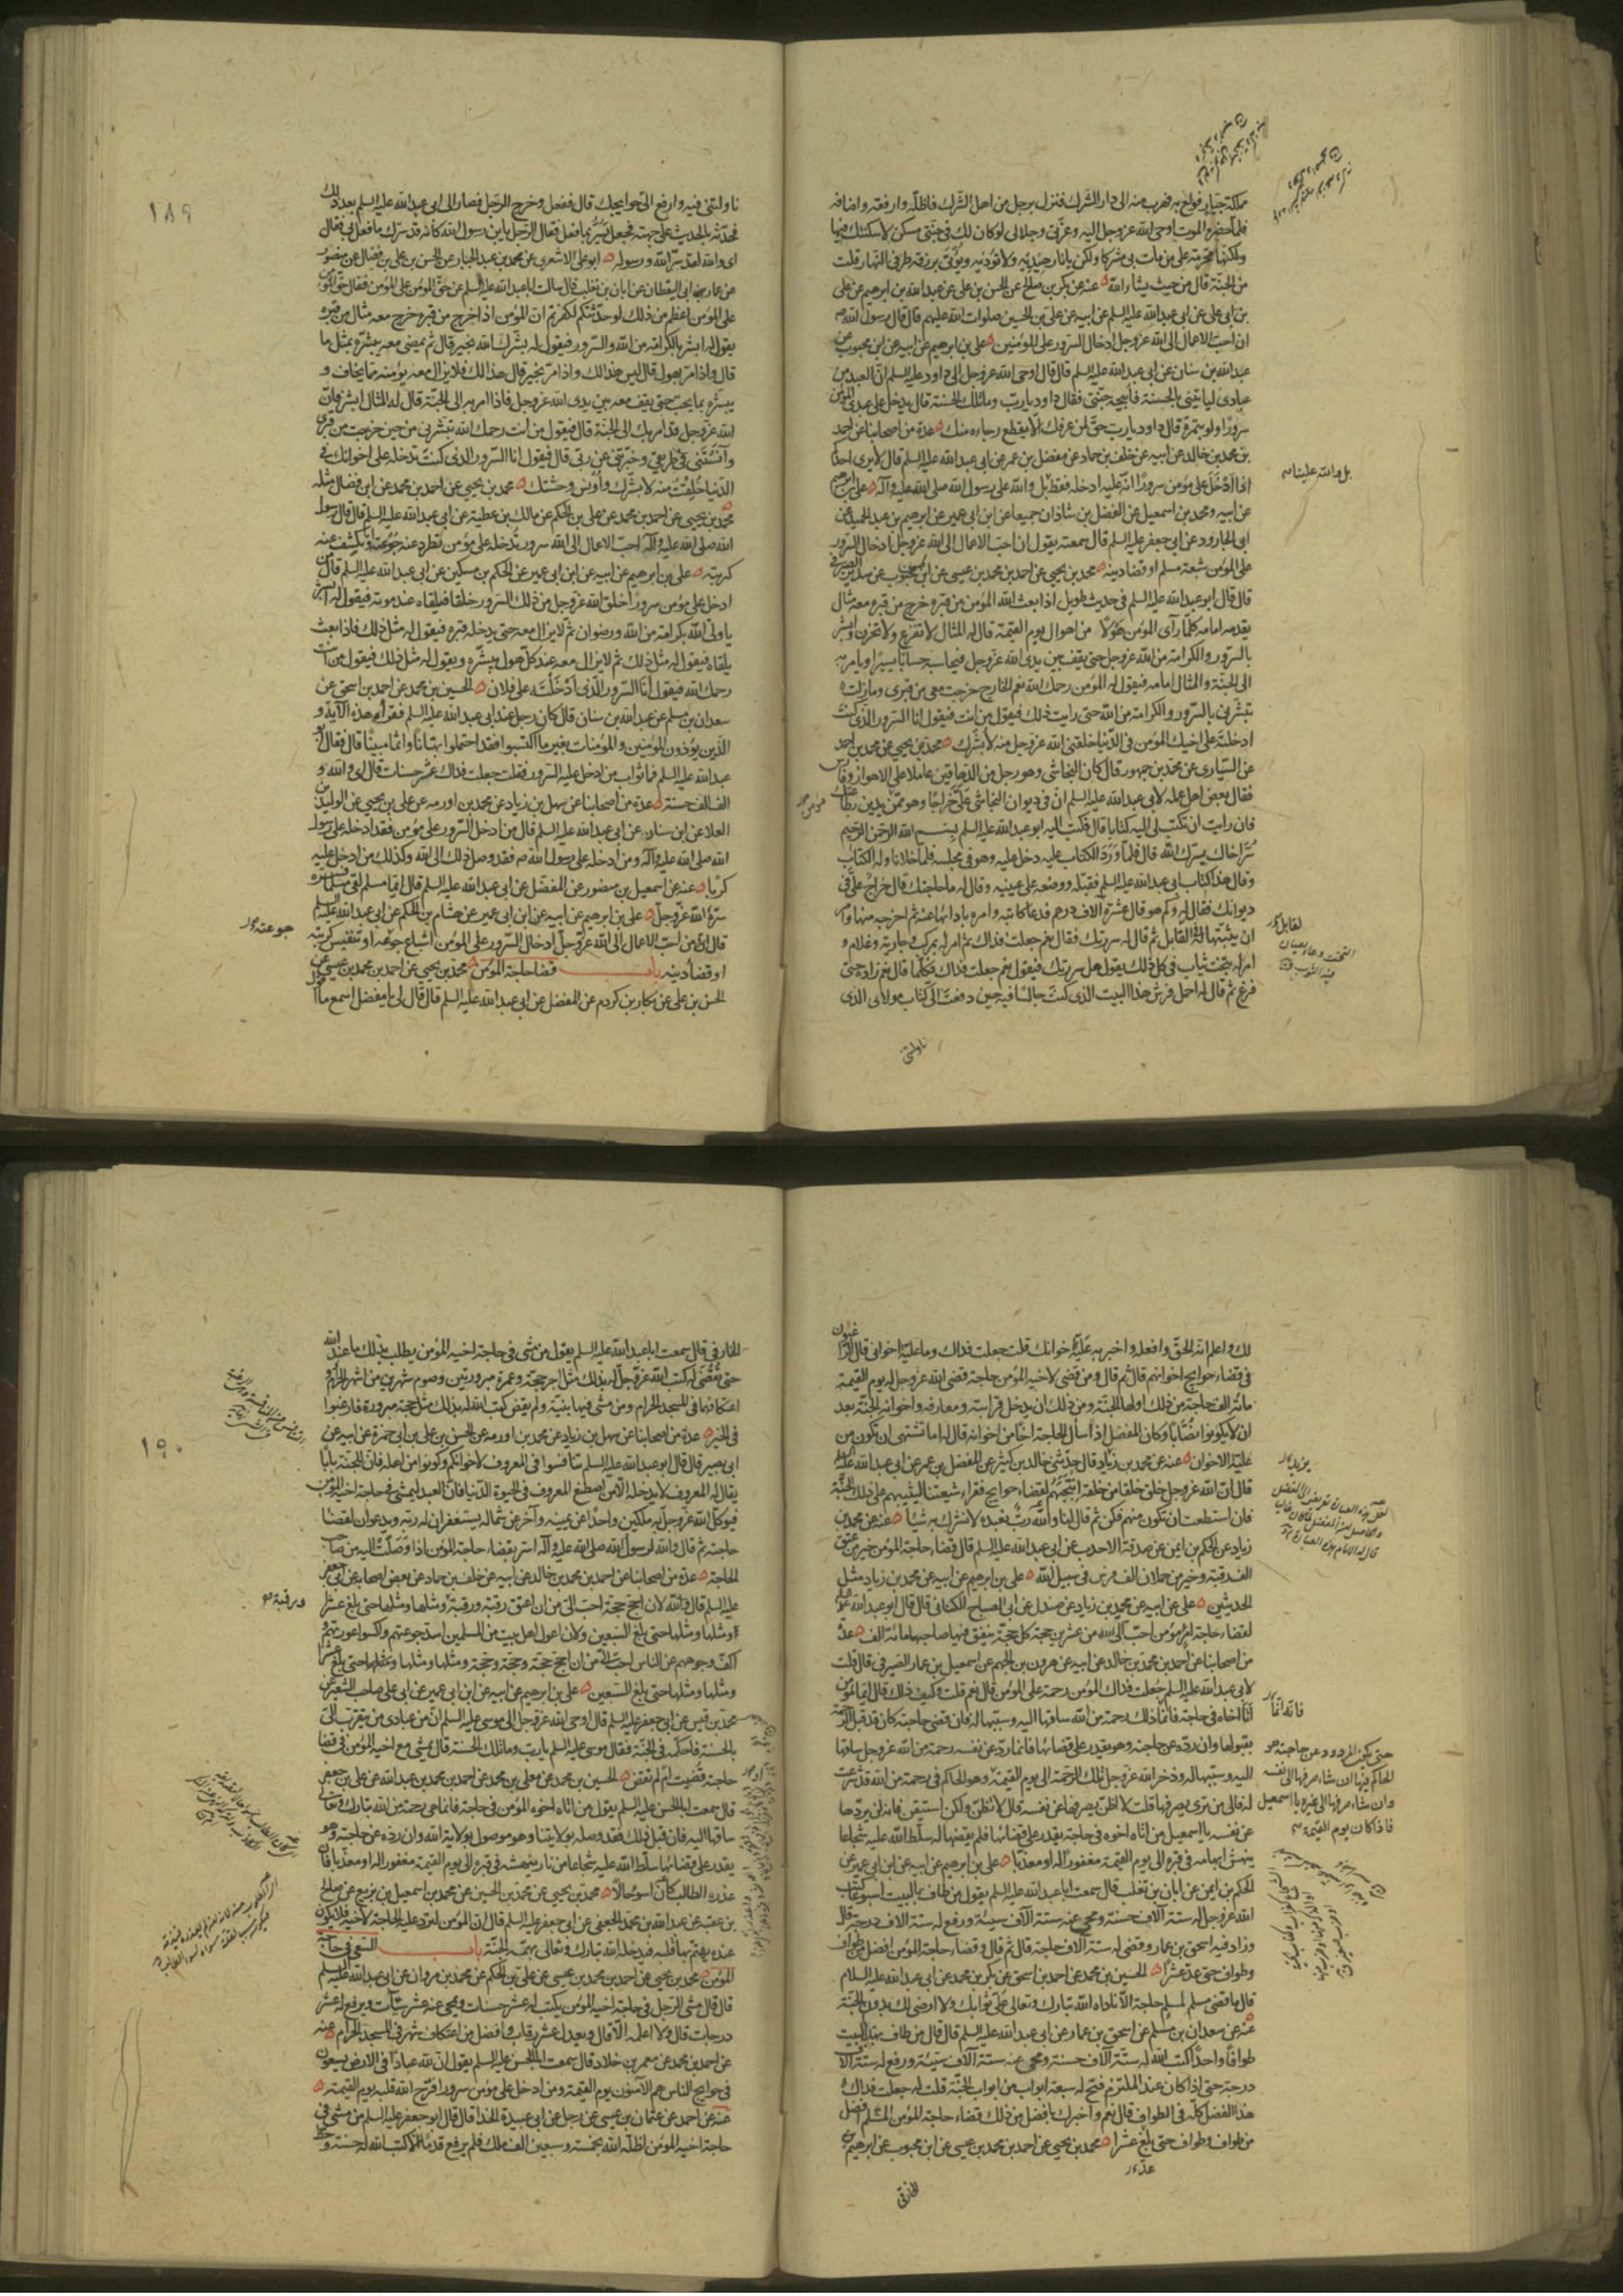 مملكة جبار فولع به فهرب منه الى دار الشرك فنزل برجل من اهل الشرك فاظلّه وارفقه واضافه
فلما حضره الموت اوحى الله عز وجل اليه وعزتي وجلالي لو كان لك في جنتي مسكن لاسكنتك فيها
ولكنها محرمة على من مات بي مشركا ولكن يا نار هيديه ولا تؤذيه ويؤتى برزقه طرفي النهار قلت
من الجنة قال من حيث يشاء الله عنه عن بكر بن صالح عن الحسن بن علي عن عبد الله بن ابرهيم عن علي
بن ابي علي عن ابي عبد الله عليه السلم عن ابيه عن علي بن الحسين صلوات الله عليهم قال قال رسول الله ص
ان احب الاعمال الى الله عز وجل ادخال السرور على المؤمنين علي بن ابرهيم عن ابيه عن ابن محبوب عن
عبد الله بن سنان عن ابي عبد الله عليه السلم قال قال اوحى الله عز وجل الى داود عليه السلم ان العبد من
عبادي ليأتيني بالحسنة فأبيحه جنتي فقال داود يا رب وما تلك الحسنة قال يدخل على عبدي المؤمن
سرورا ولو بتمرة قال داود يا رب حق لمن عرفك ان لا يقطع رجاءه منك عدة من اصحابنا عن احمد
بن محمد بن خالد عن ابيه عن خلف بن حماد عن مفضل بن عمر عن ابي عبد الله عليه السلم قال لا يرى احدكم
اذا ادخل على مؤمن سرورا انه عليه ادخله فقط بل والله على رسول الله صلى الله عليه وآله علي بن ابرهيم
عن ابيه ومحمد بن اسمعيل عن الفضل بن شاذان جميعا عن ابن ابي عمير عن ابرهيم بن عبد الحميد عن
ابي الجارود عن ابي جعفر عليه السلم قال سمعته يقول ان احب الاعمال الى الله عز وجل ادخال السرور
على المؤمن شبعة مسلم او قضاء دينه محمد بن يحيى عن احمد بن محمد بن عيسى عن ابن محبوب عن سدير الصيرفي
قال قال ابو عبد الله عليه السلم في حديث طويل اذا بعث الله المؤمن من قبره خرج من قبره معه مثال
يقدمه امامه كلما رأى المؤمن هولا من اهوال يوم القيمة قال له المثال لا تفزع ولا تحزن وابشر
بالسرور والكرامة من الله عز وجل حتى يقف بين يدي الله عز وجل فيحاسبه حسابا يسيرا ويأمر به
الى الجنة والمثال امامه فيقول له المؤمن رحمك الله نعم الخارج خرجت معي من قبري وما زلت
تبشرني بالسرور والكرامة من الله حتى رايت ذلك فيقول من انت فيقول انا السرور الذي كنت
ادخلته على اخيك المؤمن في الدنيا خلقني الله عز وجل منه لابشرك محمد بن يحيى عن محمد بن احمد
عن السياري عن محمد بن جمهور قال كان النجاشي وهو رجل من الدهاقين عاملا على الاهواز وفارس
فقال بعض اهل عمله لابي عبد الله عليه السلم ان في ديوان النجاشي عليّ خراجا وهو ممن يدين بطاعتك
فان رايت ان تكتب لي اليه كتابا قال فكتب اليه ابو عبد الله عليه السلم بسم الله الرحمن الرحيم
سُرّ اخاك يسرك الله قال فلما ورد الكتاب عليه دخل عليه وهو في مجلسه فلما خلا ناوله الكتاب
وقال هذا كتاب ابي عبد الله عليه السلم فقبله ووضعه على عينيه وقال له ما حاجتك قال خراج عليّ في
ديوانك فقال له وكم هو قال عشرة آلاف درهم فدعا كاتبه وامره بادائها عنه ثم اخرجه منها وامر
ان يثبتها له القابل ثم قال له سررتك فقال نعم جعلت فداك ثم امر له بمركب وجارية وغلام و
امر له بتخت ثياب في كل ذلك يقول هل سررتك فيقول نعم جعلت فداك فكلما قال نعم زاده حتى
فرغ ثم قال له احمل فرش هذا البيت الذي كنت جالسا فيه حين دفعت الي كتاب مولاي الذي
ناولتني
بل والله علينا
١٨٩
ناولتني فيه وارفع اليّ حوائجك قال ففعل وخرج الرجل فصار الى ابي عبد الله عليه السلم بعد ذلك
فحدثه بالحديث على جهته فجعل يُسرّ بما فعل فقال الرجل يا ابن رسول الله كانه قد سرك ما فعل بي فقال
اي والله لقد سر الله ورسوله ابو علي الاشعري عن محمد بن عبد الجبار عن الحسن بن علي بن فضال عن منصور
عن عمار بن ابي اليقظان عن ابان بن تغلب قال سالت ابا عبد الله عليه السلم عن حق المؤمن على المؤمن فقال حق المؤمن
على المؤمن اعظم من ذلك لو حدثتكم لكفرتم ان المؤمن اذا خرج من قبره خرج معه مثال من قبره
يقول له ابشر بالكرامة من الله والسرور فيقول له بشرك الله بخير قال ثم يمضي معه يبشره بمثل ما
قال واذا مر بهول قال ليس هذا لك واذا مر بخير قال هذا لك فلا يزال معه يؤمنه مما يخاف و
يبشره بما يحب حتى يقف معه بين يدي الله عز وجل فاذا امر به الى الجنة قال له المثال ابشر فان
الله عز وجل قد امر بك الى الجنة قال فيقول من انت رحمك الله تبشرني من حين خرجت من قبري
وآنستني في طريقي وخبرتني عن ربي قال فيقول انا السرور الذي كنت تدخله على اخوانك في
الدنيا خلقت منه لابشرك وأونس وحشتك محمد بن يحيى عن احمد بن محمد عن ابن فضال مثله
محمد بن يحيى عن احمد بن محمد عن علي بن الحكم عن مالك بن عطية عن ابي عبد الله عليه السلم قال قال رسول
الله صلى الله عليه وآله احب الاعمال الى الله سرور تدخله على مؤمن تطرد عنه جوعته او تكشف عنه
كربته علي بن ابرهيم عن ابيه عن ابن ابي عمير عن الحكم بن مسكين عن ابي عبد الله عليه السلم قال من
ادخل على مؤمن سرورا خلق الله عز وجل من ذلك السرور خلقا فيلقاه عند موته فيقول له ابشر
يا ولي الله بكرامة من الله ورضوان ثم لا يزال معه حتى يدخله قبره فيقول له مثل ذلك فاذا بعث
يلقاه فيقول له مثل ذلك ثم لا يزال معه عند كل هول يبشره ويقول له مثل ذلك فيقول من انت
رحمك الله فيقول انا السرور الذي ادخلته على فلان الحسين بن محمد عن احمد بن اسحق عن
سعدان بن مسلم عن عبد الله بن سنان قال كان رجل عند ابي عبد الله عليه السلم فقرأ هذه الآية و
الذين يؤذون المؤمنين والمؤمنات بغير ما اكتسبوا فقد احتملوا بهتانا واثما مبينا قال فقال ابو
عبد الله عليه السلم فما ثواب من ادخل عليه السرور فقلت جعلت فداك عشر حسنات قال اي والله و
الف الف حسنة عدة من اصحابنا عن سهل بن زياد عن محمد بن اورمه عن علي بن يحيى عن الوليد بن
العلا عن ابن سنان عن ابي عبد الله عليه السلم قال من ادخل السرور على مؤمن فقد ادخله على رسول
الله صلى الله عليه وآله ومن ادخله على رسول الله ص فقد وصل ذلك الى الله وكذلك من ادخل عليه
كربا عنه عن اسمعيل بن منصور عن المفضل عن ابي عبد الله عليه السلم قال ايما مسلم لقي مسلما فسره
سره الله عز وجل علي بن ابرهيم عن ابيه عن ابن ابي عمير عن هشام بن الحكم عن ابي عبد الله عليه السلم
قال ان من احب الاعمال الى الله عز وجل ادخال السرور على المؤمن اشباع جوعه او تنفيس كربته
او قضاء دينه باب قضا حاجة المؤمن محمد بن يحيى عن احمد بن محمد بن عيسى عن
الحسن بن علي عن بكار بن كردم عن المفضل عن ابي عبد الله عليه السلم قال قال لي يا مفضل اسمع ما اقول
جوعته
لك واعلم انه الحق وافعله واخبر به علية اخوانك قلت جعلت فداك وما علية اخواني قال الراغبون
في قضاء حوايج اخوانهم قال ثم قال ومن قضى لاخيه المؤمن حاجة قضى الله عز وجل له يوم القيمة
مائة الف حاجة من ذلك اولها الجنة ومن ذلك ان يدخل قرابته ومعارفه واخوانه الجنة بعد
ان لا يكونوا نصّابا وكان المفضل اذا سأل الحاجة اخا من اخوانه قال له اما تشتهي ان تكون من
علية الاخوان عنه عن محمد بن زياد قال حدثني خالد بن يزيد عن المفضل بن عمر عن ابي عبد الله عليه السلم
قال ان الله عز وجل خلق خلقا من خلقه انتجبهم لقضاء حوايج فقراء شيعتنا ليثيبهم على ذلك الجنة
فان استطعت ان تكون منهم فكن ثم قال لنا والله ربّ نعبده لا نشرك به شيا عنه عن محمد بن
زياد عن الحكم بن ايمن عن صدقة الاحدب عن ابي عبد الله عليه السلم قال قضاء حاجة المؤمن خير من عتق
الف رقبة وخير من حملان الف فرس في سبيل الله علي بن ابرهيم عن ابيه عن محمد بن زياد مثل
الحديثين علي عن ابيه عن محمد بن زياد عن صندل عن ابي الصباح الكناني قال قال ابو عبد الله عليه السلم
لقضاء حاجة امرء مؤمن احب الى الله من عشرين حجة كل حجة ينفق فيها صاحبها مائة الف عدة
من اصحابنا عن احمد بن محمد بن خالد عن ابيه عن هرون بن الجهم عن اسمعيل بن عمار الصيرفي قال قلت
لابي عبد الله عليه السلم جعلت فداك المؤمن رحمة على المؤمن قال نعم قلت وكيف ذاك قال ايما مؤمن
أتا اخاه في حاجة فانما ذلك رحمة من الله ساقها اليه وسببها له فان قضى حاجته كان قد قبل الرحمة
بقبولها وان رده عن حاجته وهو يقدر على قضائها فانما رد عن نفسه رحمة من الله عز وجل ساقها
اليه وسببها له وذخر الله عز وجل تلك الرحمة الى يوم القيمة وهو الحاكم في رحمة من الله قد شرعت
له فالى من ترى يصرفها قلت لا اظن يصرفها عن نفسه قال لا تظن ولكن استيقن فانه لن يردها
عن نفسه يا اسمعيل من اتاه اخوه في حاجة يقدر على قضائها فلم يقضها له سلط الله عليه شجاعا
ينهش ابهامه في قبره الى يوم القيمة مغفورا له او معذبا علي بن ابرهيم عن ابيه عن ابن ابي عمير عن
الحكم بن ايمن عن ابان بن تغلب قال سمعت ابا عبد الله عليه السلم يقول من طاف بالبيت اسبوعا كتب
الله عز وجل له ستة آلاف حسنة ومحى عنه ستة آلاف سيئة ورفع له ستة آلاف درجة قال
وزاد فيه اسحق بن عمار وقضى له ستة آلاف حاجة قال ثم قال وقضاء حاجة المؤمن افضل من طواف
وطواف حتى عد عشرا الحسين بن محمد عن احمد بن اسحق عن بكر بن محمد عن ابي عبد الله عليه السلام
قال ما قضى مسلم لمسلم حاجة الا ناداه الله تبارك وتعالى عليّ ثوابك ولا ارضى لك بدون الجنة
عنه عن سعدان بن مسلم عن اسحق بن عمار عن ابي عبد الله عليه السلم قال قال من طاف بهذا البيت
طوافا واحدا كتب الله له ستة آلاف حسنة ومحى عنه ستة آلاف سيئة ورفع له ستة آلاف
درجة حتى اذا كان عند الملتزم فتح له سبعة ابواب من ابواب الجنة قلت له جعلت فداك
هذا الفضل كله في الطواف قال نعم واخبرك بافضل من ذلك قضاء حاجة المؤمن المسلم افضل
من طواف وطواف حتى بلغ عشرا محمد بن يحيى عن احمد بن محمد بن عيسى عن ابن محبوب عن ابرهيم
الخارقي
فانه انما
حتى يكون المردود عن حاجته هو
الحاكم فيها ان شاء صرفها الى نفسه
وان شاء صرفها الى غيره يا اسمعيل
فاذا كان يوم القيمة
١٩٠
الخارقي قال سمعت ابا عبد الله عليه السلم يقول من مشى في حاجة اخيه المؤمن يطلب بذلك ما عند الله
حتى تقضى له كتب الله عز وجل له بذلك مثل اجر حجة وعمرة مبرورتين وصوم شهرين من اشهر الحرم و
اعتكافهما في المسجد الحرام ومن مشى فيها بنية ولم يقض كتب الله له بذلك مثل حجة مبرورة فارغبوا
في الخير عدة من اصحابنا عن سهل بن زياد عن محمد بن اورمه عن الحسن بن علي بن ابي حمزة عن ابيه عن
ابي بصير قال قال ابو عبد الله عليه السلم تنافسوا في المعروف لاخوانكم وكونوا من اهله فان للجنة بابا
يقال له المعروف لا يدخله الا من اصطنع المعروف في الحيوة الدنيا فان العبد ليمشي في حاجة اخيه المؤمن
فيوكل الله عز وجل به ملكين واحدا عن يمينه وآخر عن شماله يستغفران له ربه ويدعوان لقضاء
حاجته ثم قال والله لرسول الله صلى الله عليه وآله اسر بقضاء حاجة المؤمن اذا وصلت اليه من صاحب
الحاجة عدة من اصحابنا عن احمد بن محمد بن خالد عن ابيه عن خلف بن حماد عن بعض اصحابه عن ابي جعفر
عليه السلم قال والله لان احج حجة احب اليّ من ان اعتق رقبة ورقبة ومثلها ومثلها حتى بلغ عشرا
ومثلها ومثلها حتى بلغ السبعين ولان اعول اهل بيت من المسلمين اسد جوعتهم واكسوا عورتهم و
اكف وجوههم عن الناس احب اليّ من ان احج حجة وحجة وحجة ومثلها ومثلها ومثلها حتى بلغ عشرا
ومثلها ومثلها حتى بلغ السبعين علي بن ابرهيم عن ابيه عن ابن ابي عمير عن ابي علي صاحب الشعير عن
محمد بن قيس عن ابي جعفر عليه السلم قال اوحى الله عز وجل الى موسى عليه السلم ان من عبادي من يتقرب اليّ
بالحسنة فاحكمه في الجنة فقال موسى عليه السلم يا رب وما تلك الحسنة قال يمشي مع اخيه المؤمن في قضا
حاجته قضيت ام لم تقض الحسين بن محمد عن معلى بن محمد عن احمد بن محمد بن عبد الله عن علي بن جعفر
قال سمعت ابا الحسن عليه السلم يقول من اتاه اخوه المؤمن في حاجة فانما هي رحمة من الله تبارك وتعالى
ساقها اليه فان قبل ذلك فقد وصله بولايتنا وهو موصول بولاية الله وان رده عن حاجته وهو
يقدر على قضائها سلط الله عليه شجاعا من نار ينهشه في قبره الى يوم القيمة مغفور له او معذبا فان
عذره الطالب كان اسوء حالا محمد بن يحيى عن محمد بن الحسين عن محمد بن اسمعيل بن بزيع عن صالح
بن عقبه عن عبد الله بن محمد الجعفي عن ابي جعفر عليه السلم قال ان المؤمن لترد عليه الحاجة لاخيه فلا يكون
عنده يهتم بها قلبه فيدخله الله تبارك وتعالى بهمه الجنة باب السعي في حاجة
المؤمن محمد بن يحيى عن احمد بن محمد بن عيسى عن علي بن الحكم عن محمد بن مروان عن ابي عبد الله عليه السلم
قال قال مشى الرجل في حاجة اخيه المؤمن يكتب له عشر حسنات ويمحى عنه عشر سيآت ويرفع له عشر
درجات قال ولا اعلمه الا قال ويعدل عشر رقاب وافضل من اعتكاف شهر في المسجد الحرام عنه
عن احمد بن محمد عن معمر بن خلاد قال سمعت ابا الحسن عليه السلم يقول ان لله عبادا في الارض يسعون
في حوايج الناس هم الآمنون يوم القيمة ومن ادخل على مؤمن سرورا فرح الله قلبه يوم القيمة
عنه عن احمد عن عثمان بن عيسى عن رجل عن ابي عبيدة الحذا قال قال ابو جعفر عليه السلم من مشى في
حاجة اخيه المؤمن اظله الله بخمسة وسبعين الف ملك فلم يرفع قدما الا كتب الله له حسنة وحط
ورقبة